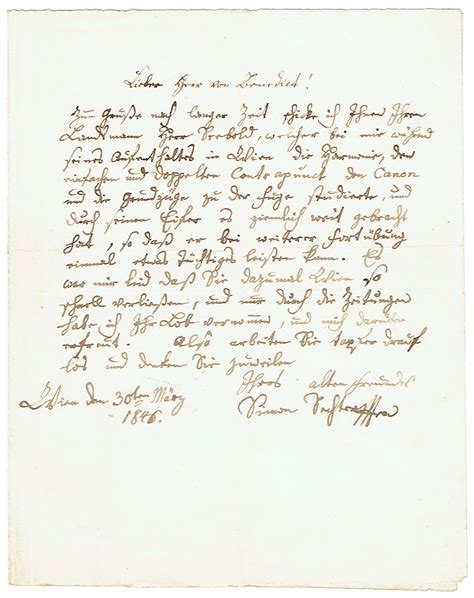 Lieber Herr von Benedict!
Zum Gruße nach langer Zeit schicke ich Ihnen Ihren
Landsmann Herr Seebold, welcher bei mir während
seines Aufenthaltes in Wien die Harmonie, den
einfachen und doppelten Contrapunct den Canon
und die Grundzüge zu der Fuge studierte, und
durch seinen Eifer es ziemlich weit gebracht
hat, so daß er bei weiterer Fortübung
einmal etwas tüchtiges leisten kann. Es
war mir leid daß Sie dazumal Wien so
schnell verließen, und nur durch die Zeitungen
habe ich Ihr Lob vernommen, und mich darüber
erfreut. Also arbeiten Sie tapfer drauf
los und denken Sie zuweilen
Ihres alten Freundes
Wien den 30ten März Simon Sechter
1846.